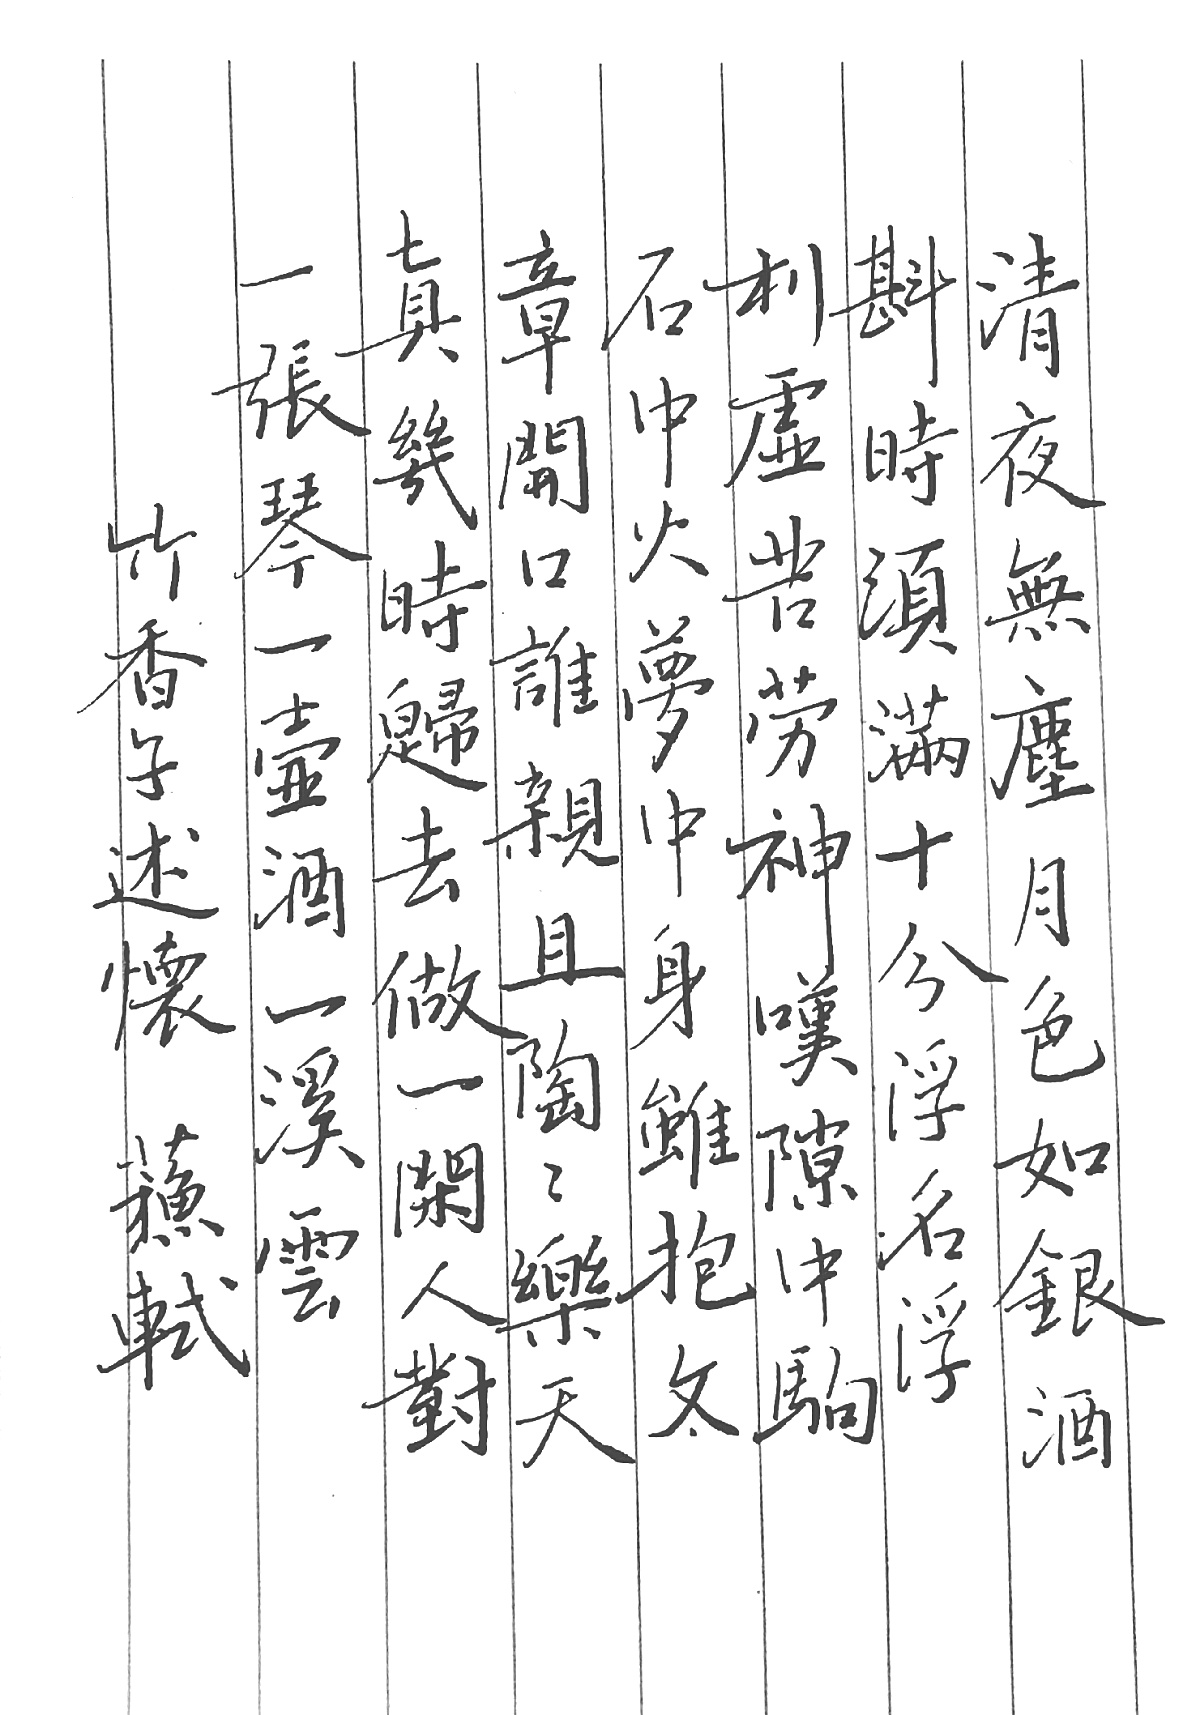 清夜無塵月色如銀酒
斟時須滿十分浮名浮
利虛苦勞神嘆隙中駒
石中火夢中身雖抱文
章開口誰親且陶〻樂天
真幾時歸去做一閑人對
一張琴一壺酒一溪雲
行香子述懷 蘇軾